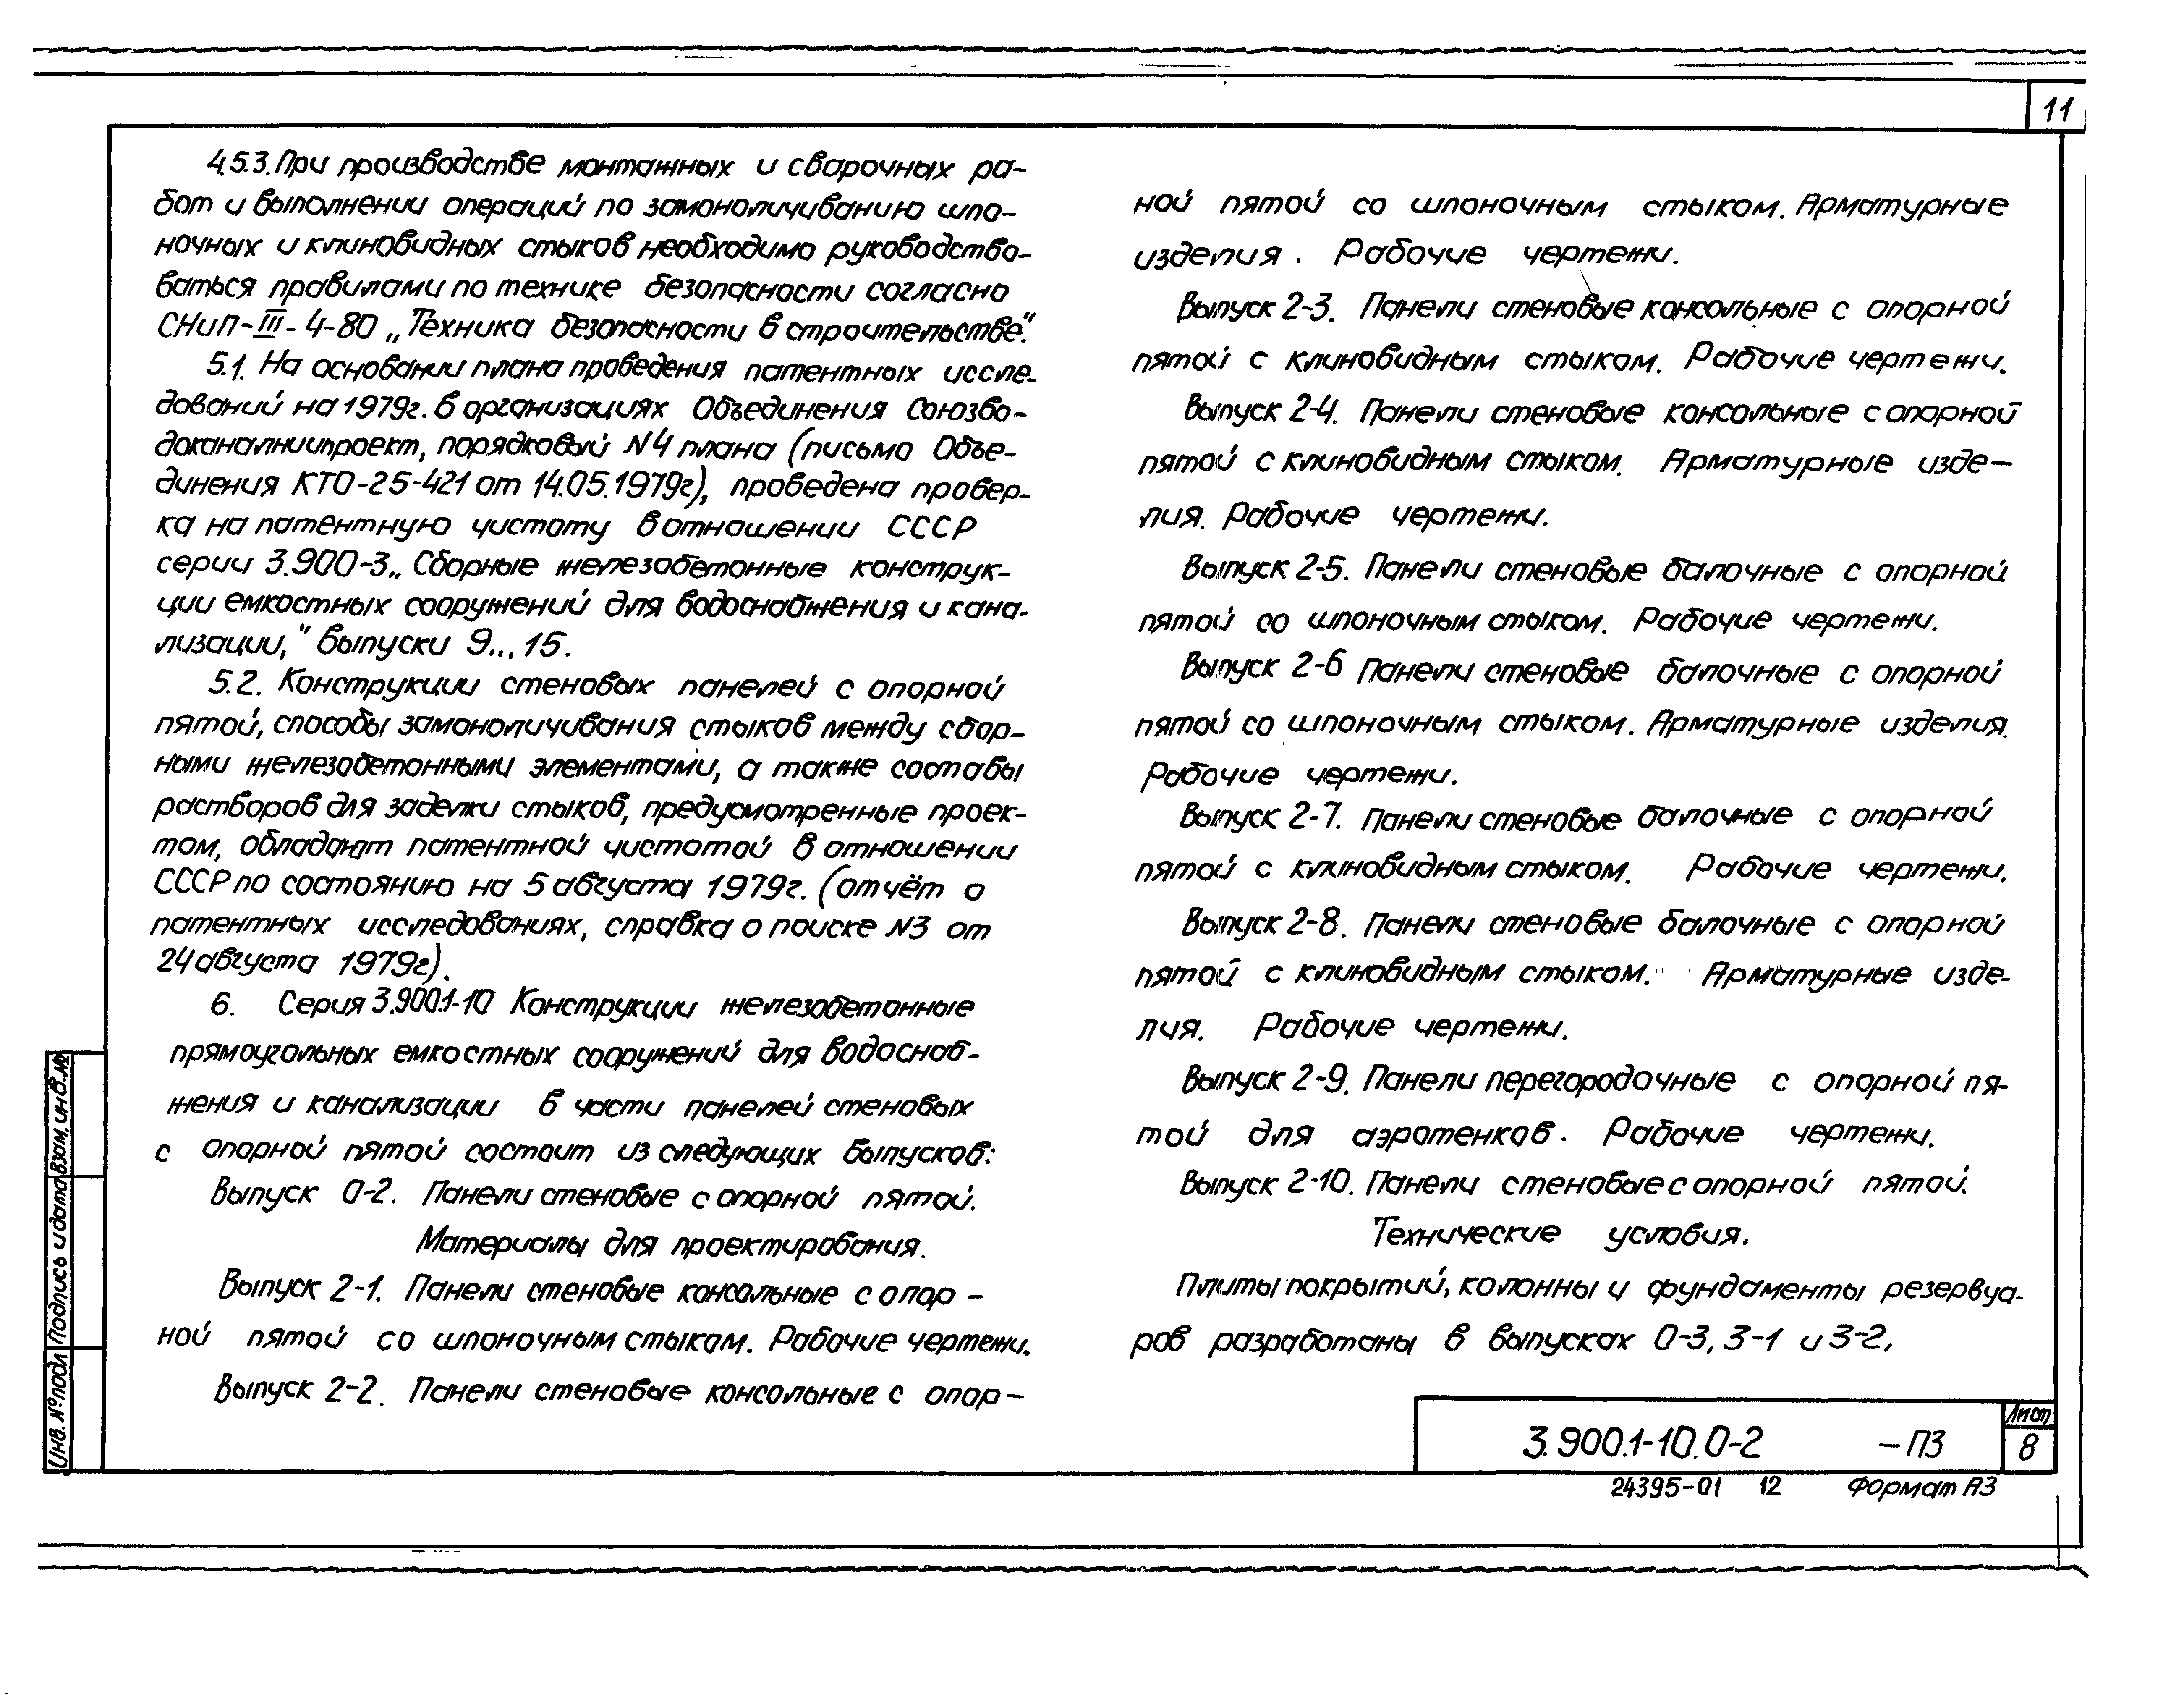 11
4.5.3. При производстве монтажных и сварочных ра-
бот и выполнении операций по замоноличиванию шпо-
ночных и клиновидных стыков необходимо руководство-
ваться правилами по технике безопасности согласно
СНиП-III-4-80 „Техника безопасности в строительстве."
5.1. На основании плана проведения патентных иссле-
дований на 1979г. в организациях Объединения Союзво-
доканалниипроект, порядковый N4 плана (письмо Объе-
динения КТО-25-421 от 14.05.1979г), проведена провер-
ка на патентную чистоту в отношении СССР
серии 3.900-3 „Сборные железобетонные конструк-
ции емкостных сооружений для водоснабжения и кана-
лизации," выпуски 9...15.
5.2. Конструкции стеновых панелей с опорной
пятой, способы замоноличивания стыков между сбор-
ными железобетонными элементами, а также составы
растворов для заделки стыков, предусмотренные проек-
том, обладают патентной чистотой в отношении
СССР по состоянию на 5 августа 1979г. (отчёт о
патентных исследованиях, справка о поиске N3 от
24 августа 1979г).
6. Серия 3.900.1-10 Конструкции железобетонные
прямоугольных емкостных сооружений для водоснаб-
жения и канализации в части панелей стеновых
с опорной пятой состоит из следующих выпусков:
Выпуск 0-2. Панели стеновые с опорной пятой.
Материалы для проектирования.
Выпуск 2-1. Панели стеновые консольные с опор-
ной пятой со шпоночным стыком. Рабочие чертежи.
Выпуск 2-2. Панели стеновые консольные с опор-
ной пятой со шпоночным стыком. Арматурные
изделия. Рабочие чертежи.
Выпуск 2-3. Панели стеновые консольные с опорной
пятой с клиновидным стыком. Рабочие чертежи.
Выпуск 2-4. Панели стеновые консольные с опорной
пятой с клиновидным стыком. Арматурные изде-
лия. Рабочие чертежи.
Выпуск 2-5. Панели стеновые балочные с опорной
пятой со шпоночным стыком. Рабочие чертежи.
Выпуск 2-6 Панели стеновые балочные с опорной
пятой со шпоночным стыком. Арматурные изделия.
Рабочие чертежи.
Выпуск 2-7. Панели стеновые балочные с опорной
пятой с клиновидным стыком. Рабочие чертежи.
Выпуск 2-8. Панели стеновые балочные с опорной
пятой с клиновидным стыком. Арматурные изде-
лия. Рабочие чертежи.
Выпуск 2-9. Панели перегородочные с опорной пя-
той для аэротенков. Рабочие чертежи.
Выпуск 2-10. Панели стеновые с опорной пятой.
Технические условия.
Плиты покрытий, колонны и фундаменты резервуа-
ров разработаны в выпусках 0-3, 3-1 и 3-2.
Инв. № подл Подпись и дата Взам. инв. №
3.900.1-10.0-2 -ПЗ
Лист
8
24395-01 12 Формат А3